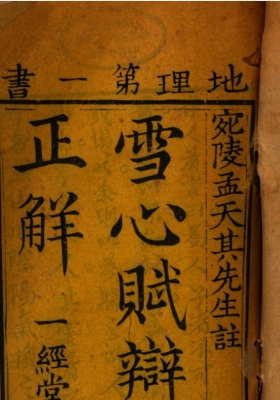 地理第一書
宛陵孟天其先生註
雪心賦辯
正解
一經堂